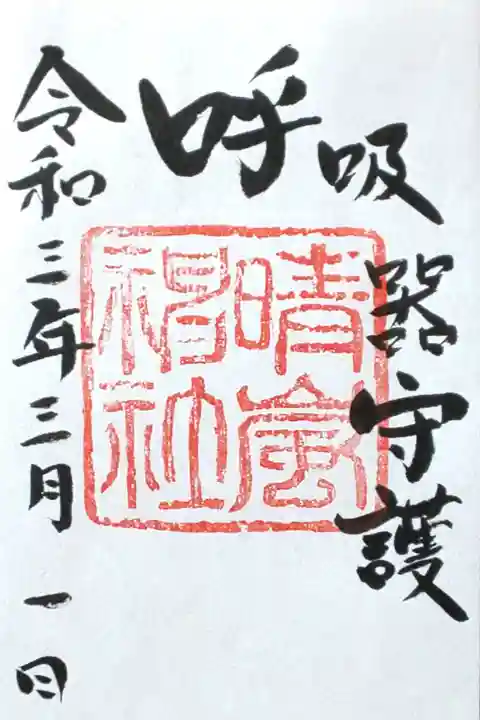 呼吸器守護
晴嵐
社
令和三年三月一日